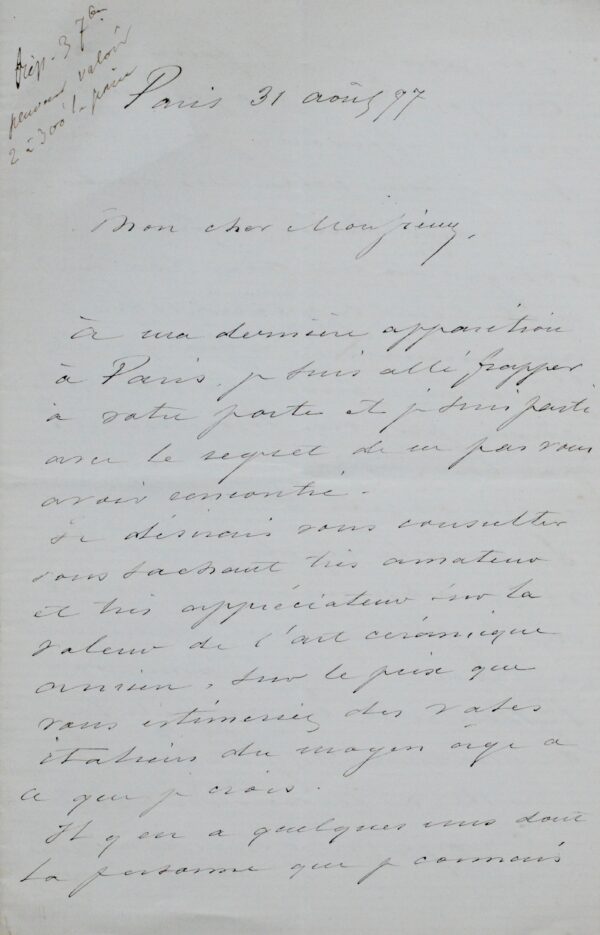 Rép. 3 7bre
peuvent valoir
2 à 300 f. la paire
Paris 31 août 77
Mon cher Monsieur,
à ma dernière apparition
à Paris, je suis allé frapper
à votre porte et je suis parti
avec le regret de ne pas vous
avoir rencontré.
Je désirais vous consulter
vous sachant très amateur
et très appréciateur sur la
valeur de l'art céramique
ancien, sur le prix que
vous estimeriez des vases
italiens du moyen âge à
ce que je crois.
Il y en a quelques uns dont
la personne que je connais